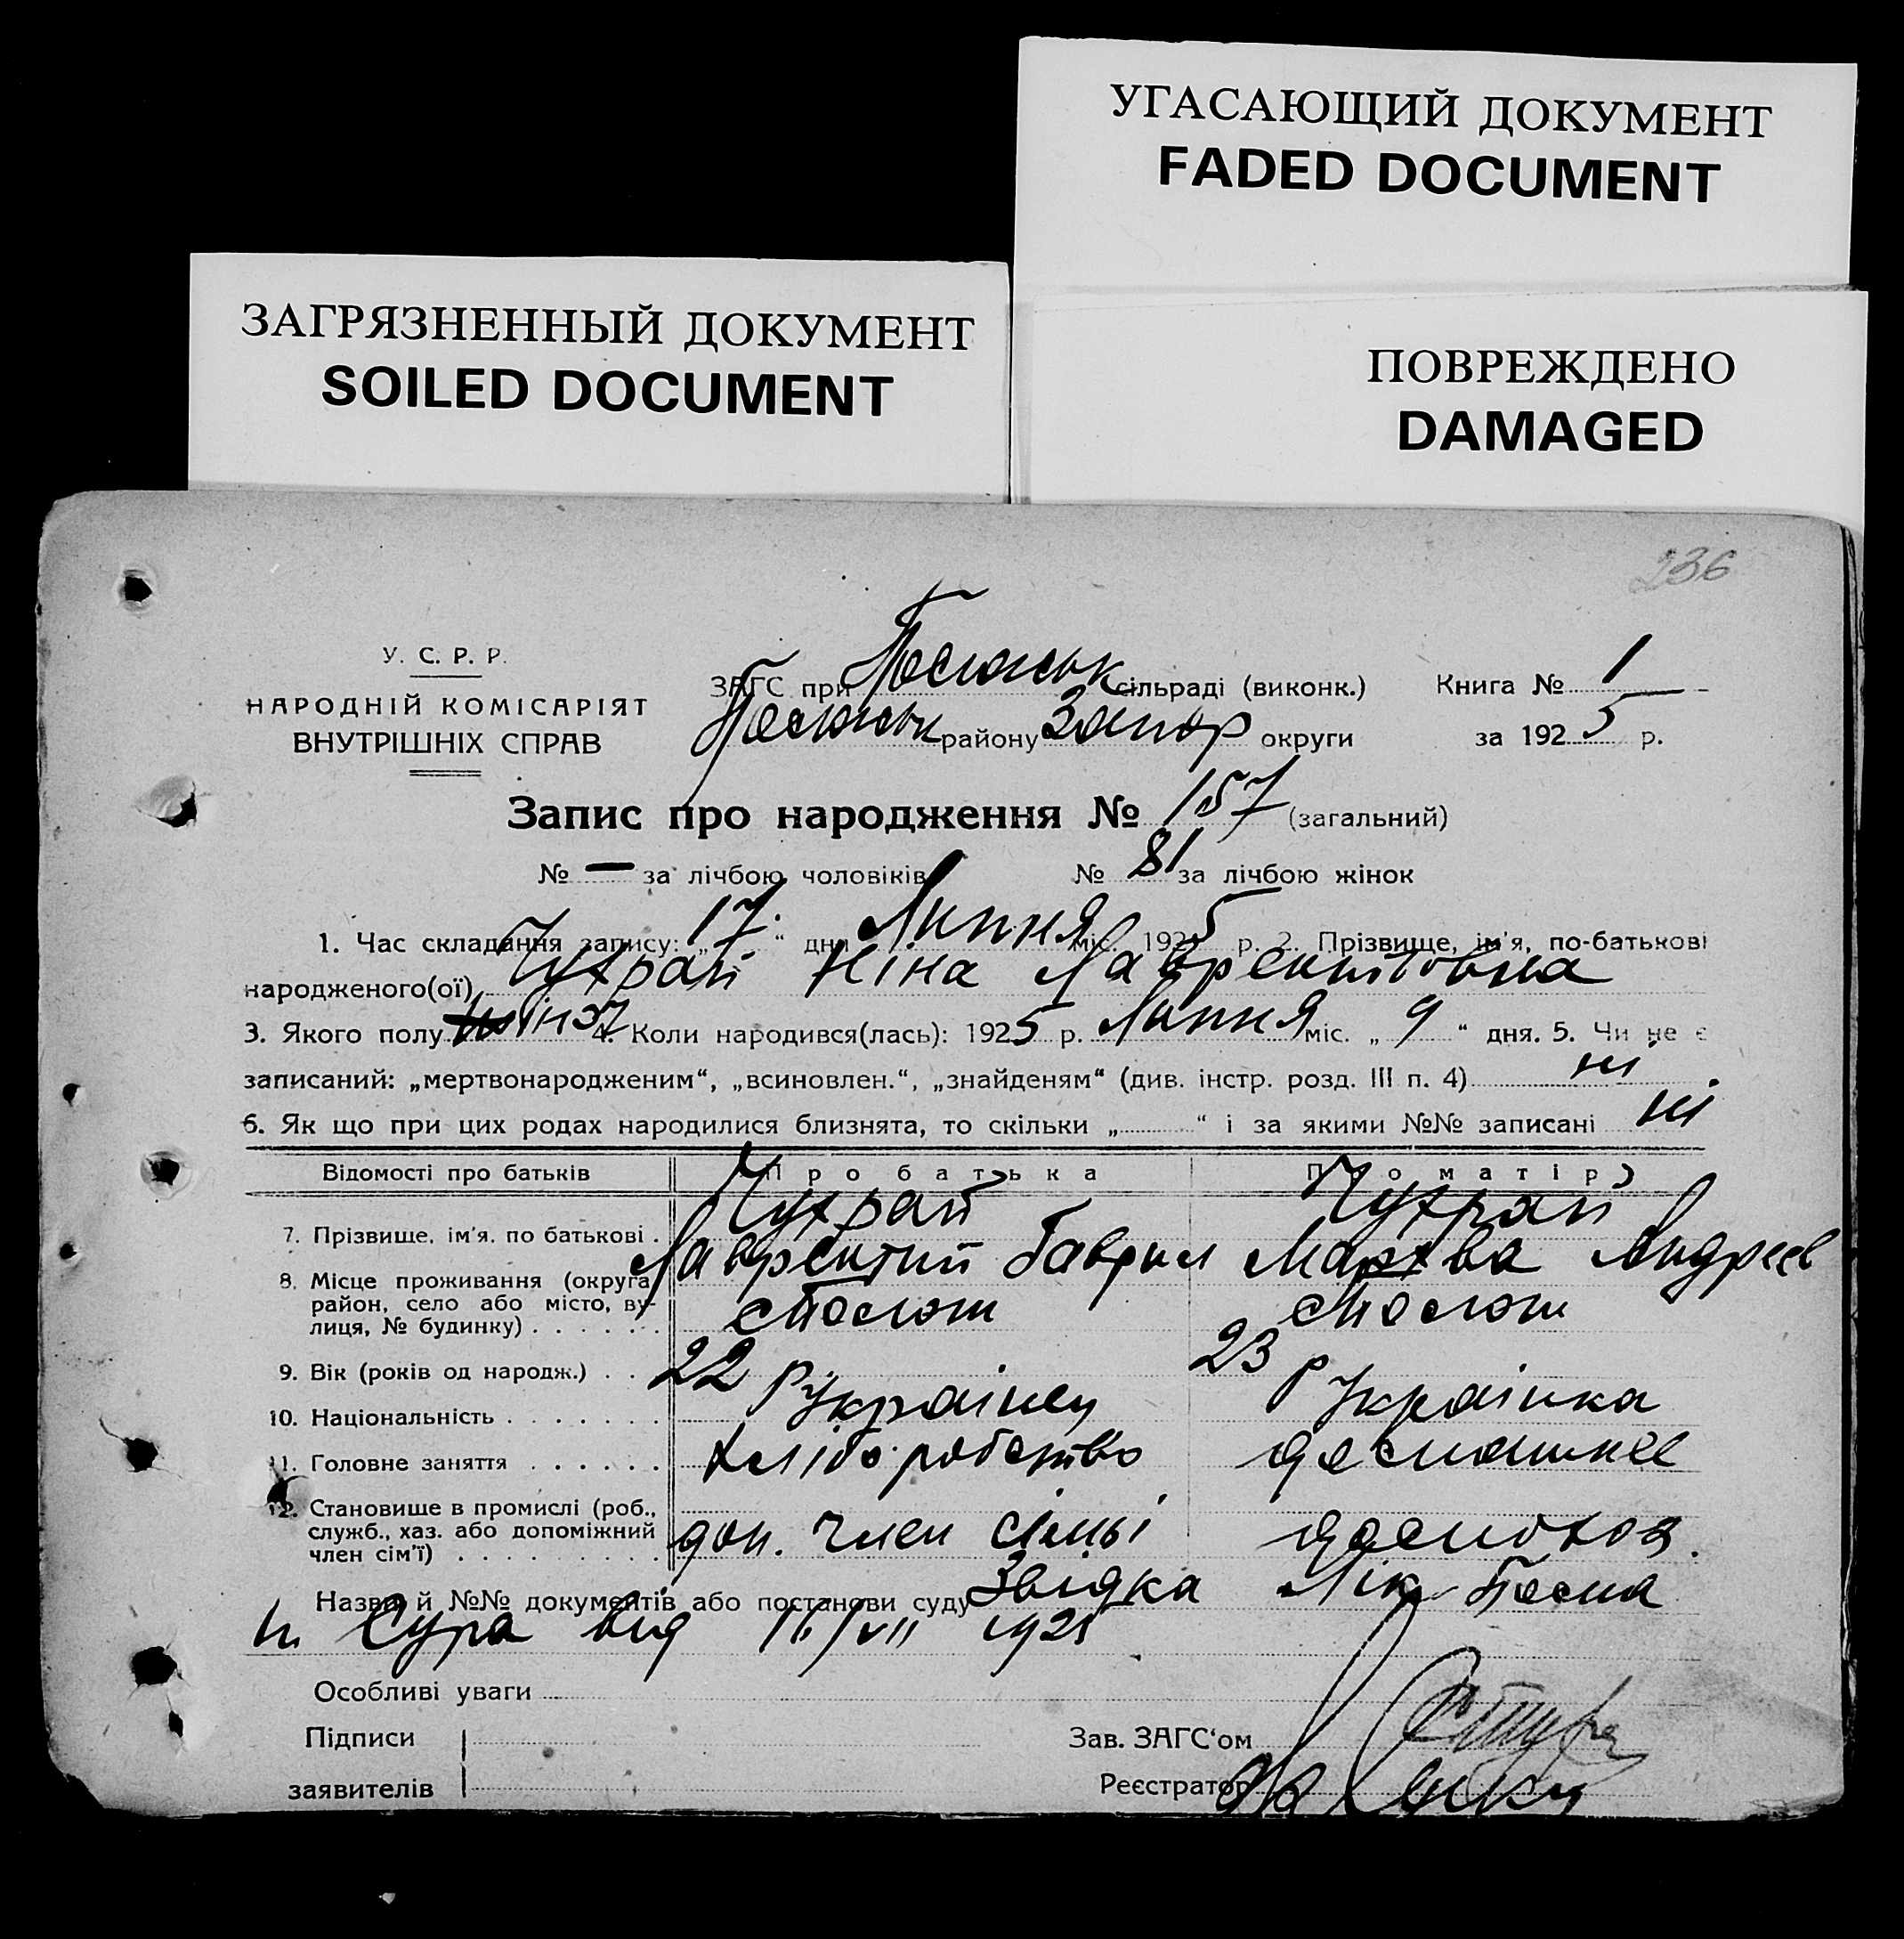 УГАСАЮЩИЙ ДОКУМЕНТ
FADED DOCUMENT
ЗАГРЯЗНЕННЫЙ ДОКУМЕНТ
SOILED DOCUMENT
ПОВРЕЖДЕНО
DAMAGED
236
У. С. Р. Р.
НАРОДНІЙ КОМІСАРІЯТ
ВНУТРІШНІХ СПРАВ
ЗАГС при сільраді (виконк.)
району Запор округи
Книга № 1
за 1925 р.
Запис про народження № 157 (загальний)
№ — за лічбою чоловіків № 81 за лічбою жінок
1. Час складання запису: „17“ дня Липня міс. 1925 р. 2. Прізвище, ім'я, по-батькові
народженого(ої) Чухрай Ніна Лаврентівна
3. Якого полу жін 4. Коли народився(лась): 1925 р. Липня міс. „9“ дня. 5. Чи не є
записаний: „мертвонародженим“, „всиновлен.“, „знайденям“ (див. інстр. розд. III п. 4) ні
6. Як що при цих родах народилися близнята, то скільки „ “ і за якими №№ записані ні
Відомості про батьків Про батька Про матір
7. Прізвище, ім'я, по батькові Чухрай Лаврентий Гаврил Чухрай Марфа Андреев
8. Місце проживання (округа, район, село або місто, вулиця, № будинку)
9. Вік (років од народж.) 22 р 23 р
10. Національність Українец Українка
11. Головне заняття хліборобство домашнее
12. Становище в промислі (роб., служб., хаз. або допоміжний член сім'ї) доп. член сімьі домохоз.
Назва й №№ документів або постанови суду Звідка Лік
Сура від /VII 1925
Особливі уваги
Підписи
заявителів
Зав. ЗАГС'ом
Реєстратор